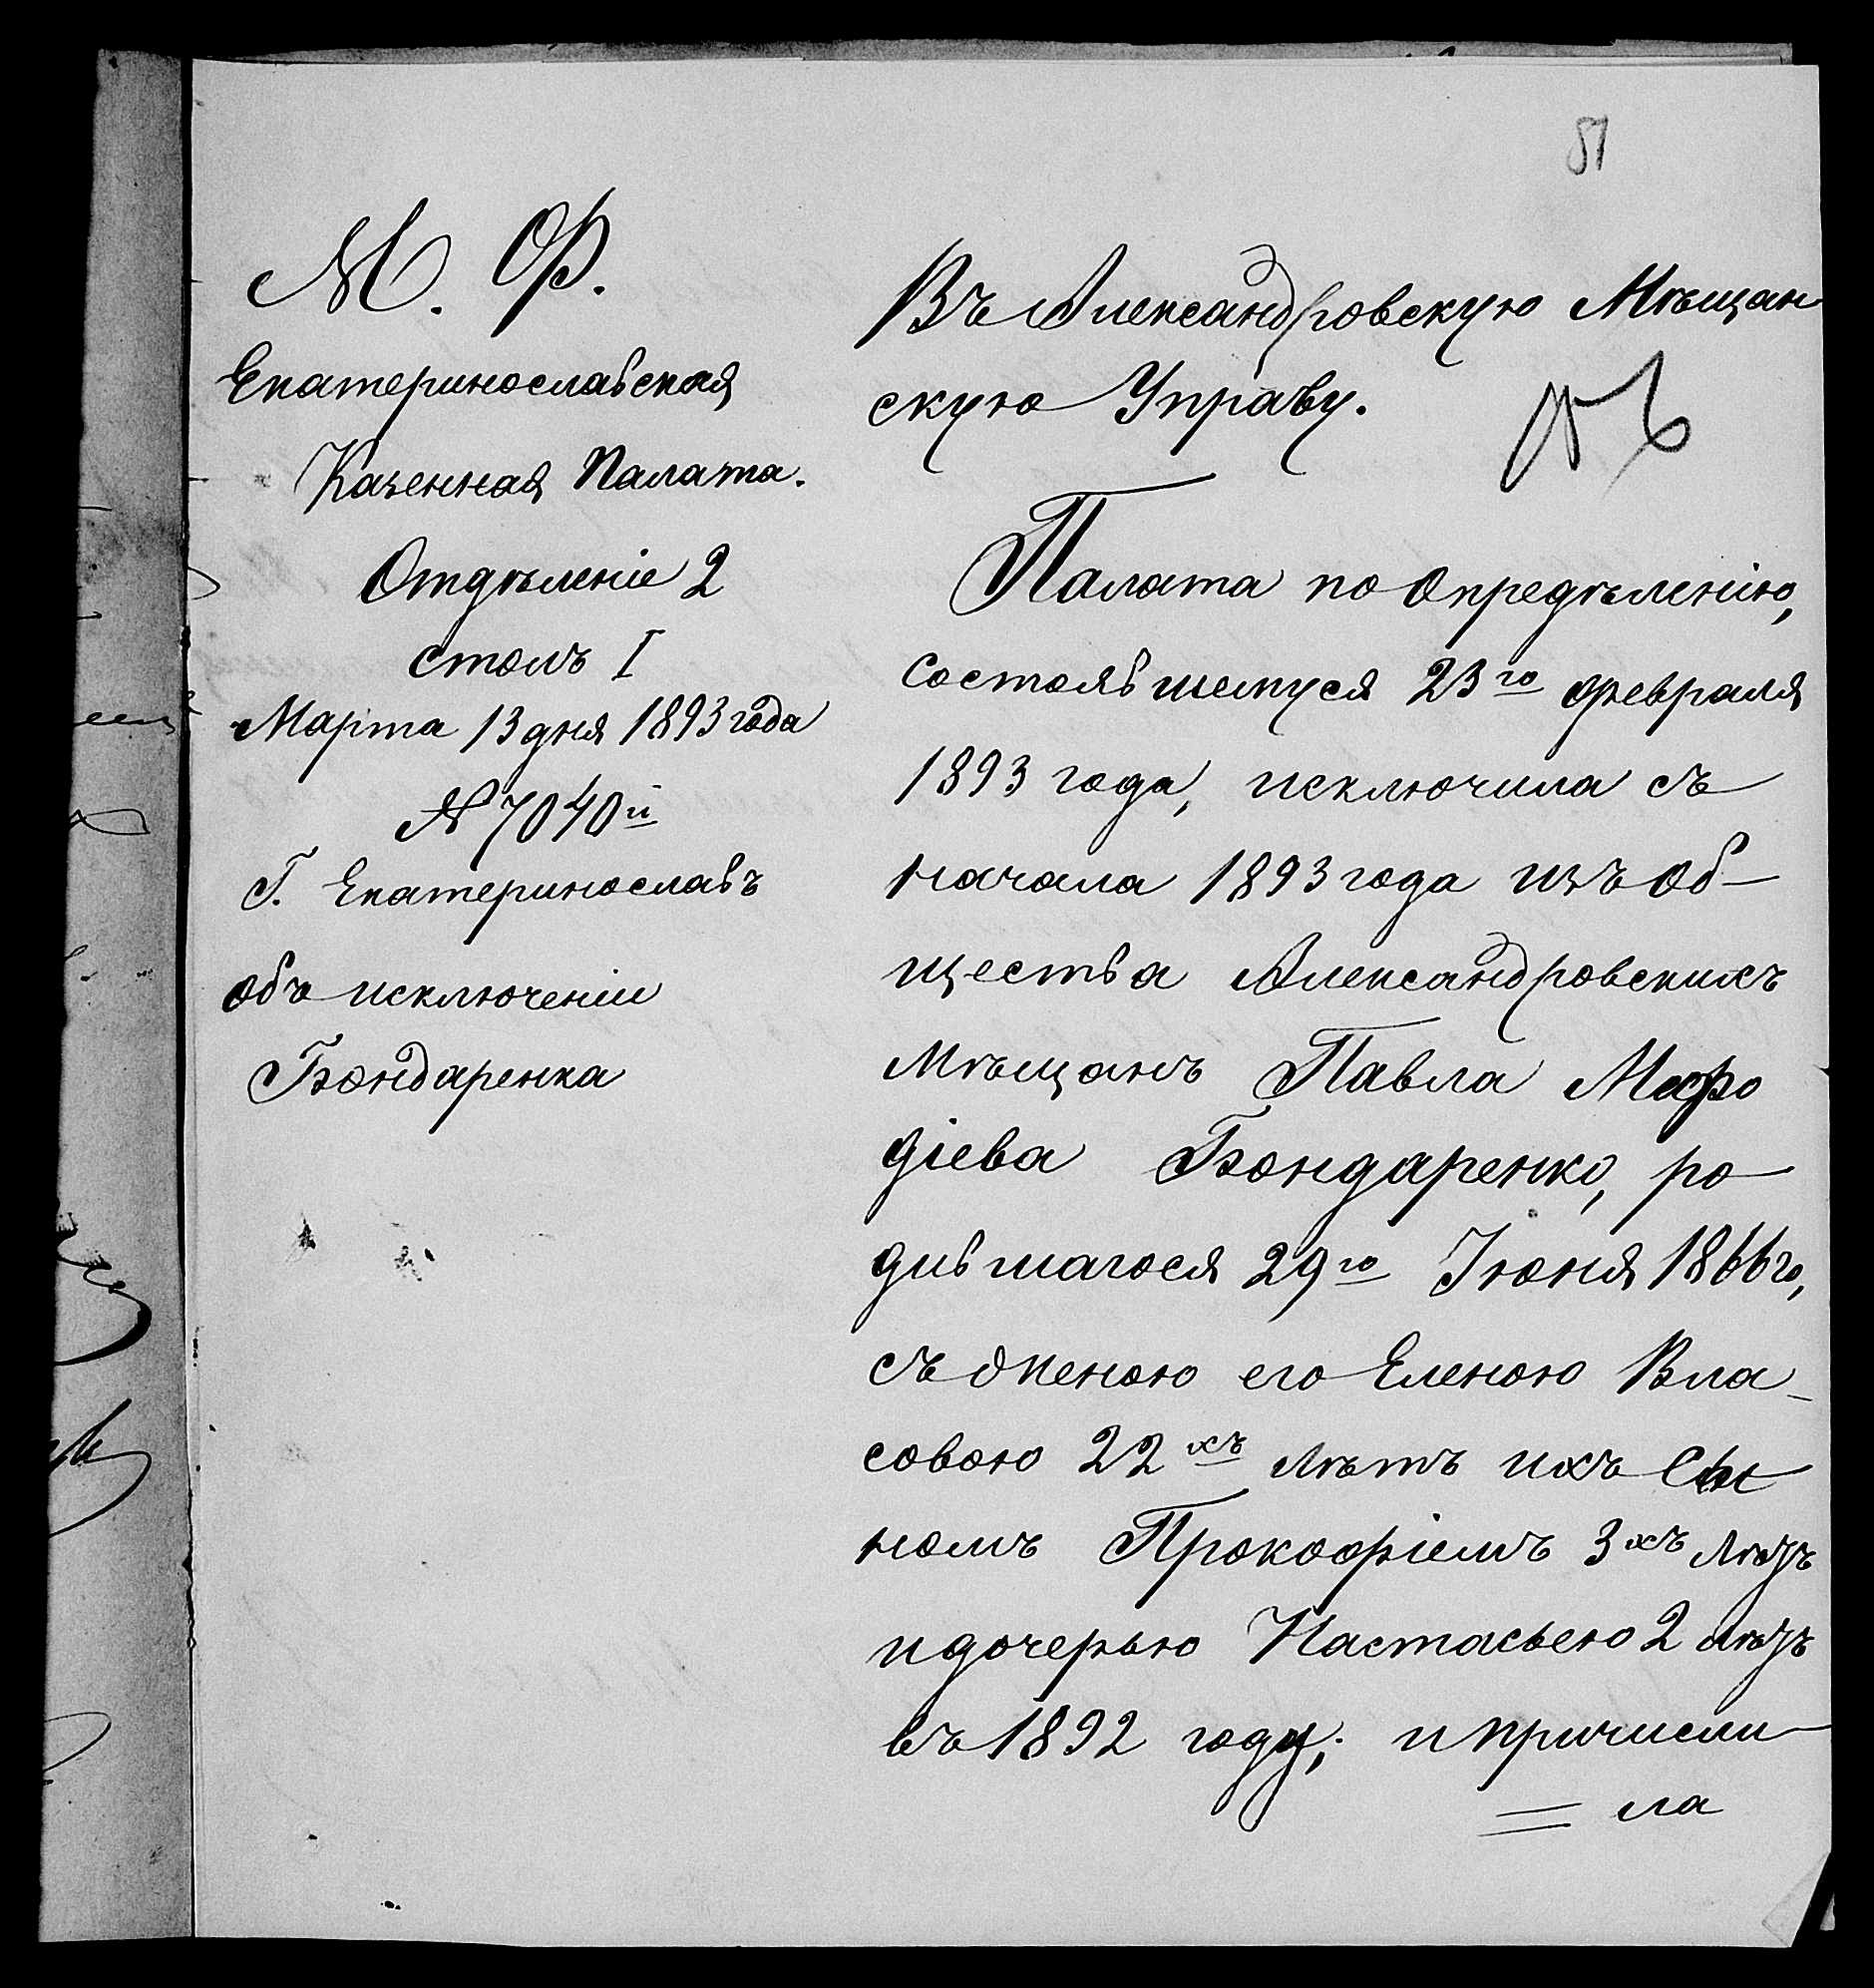 51
М. Ф.
Екатеринославская
Казенная Палата.
Отдѣленіе 2
столъ I
Марта 13 дня 1893 года
№ 7040й
Г. Екатеринославъ
объ исключеніи
Бондаренка
Въ Александровскую Мѣщан
скую Управу.
Палата по опредѣленію,
состоявшемуся 23го февраля
1893 года, исключила съ
начала 1893 года изъ об-
щества Александровскихъ
мѣщанъ Павла Мефо
діева Бондаренко, ро
дившагося 29го Іюня 1866 го,
съ женою его Еленою Вла-
совою 22хъ лѣтъ ихъ сы
номъ Прокофіемъ 3хъ лѣтъ
и дочерью Настасьею 2 лѣтъ
въ 1892 году; и причисли
= ла